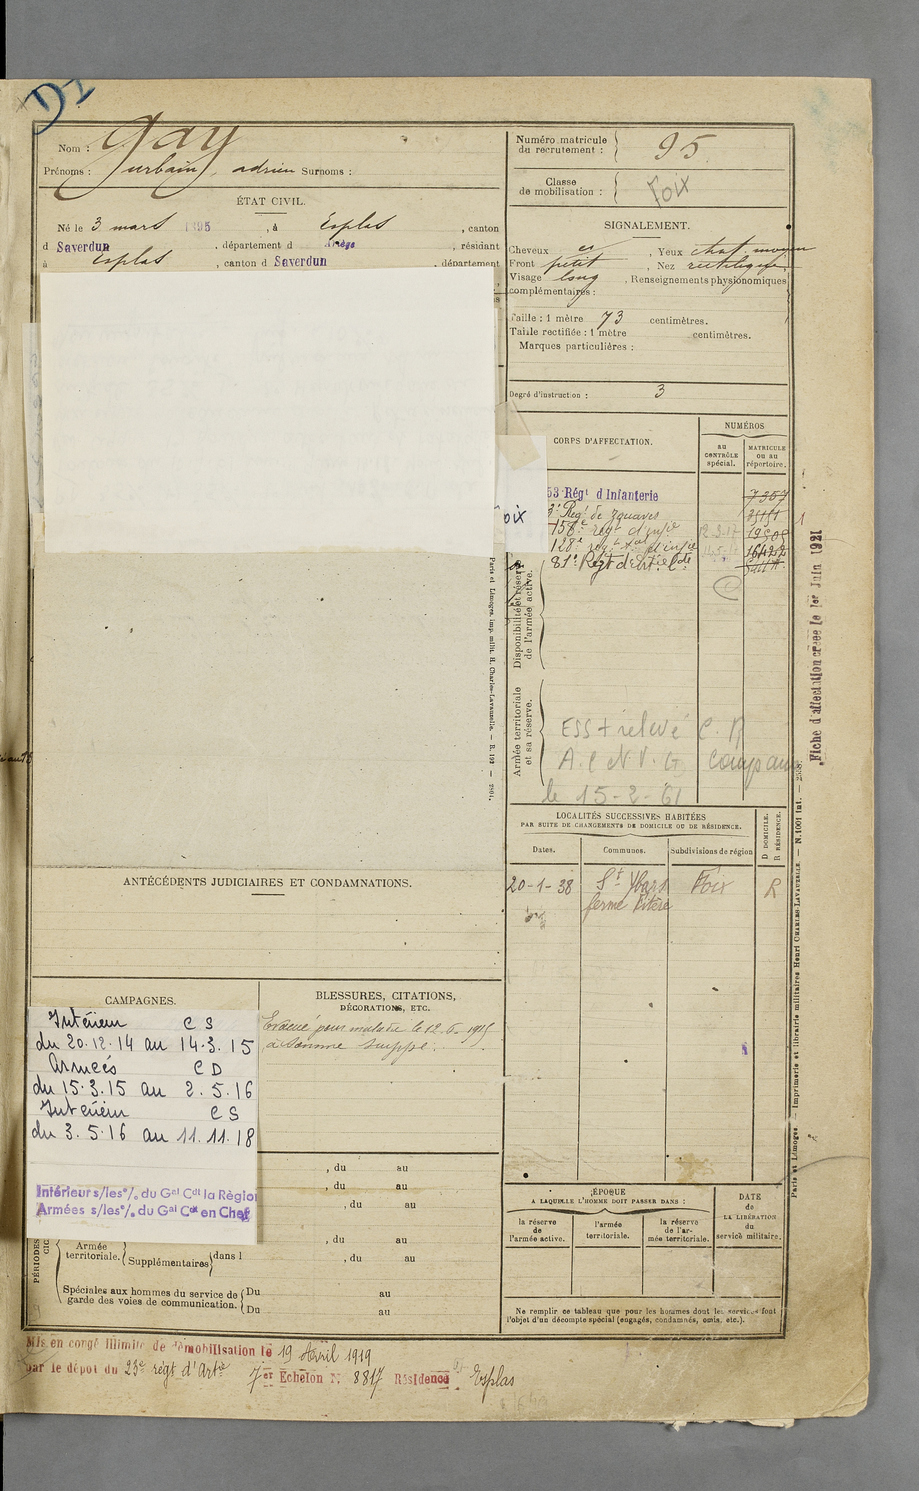 Nom : Gay
Prénoms : urbain, adrien Surnoms :
ÉTAT CIVIL.
Né le 3 mars 1895, à Esplas, canton
d Saverdun, département d Ariège, résidant
à Esplas, canton d Saverdun, département
Numéro matricule
du recrutement : 95
Classe
de mobilisation : Foix
SIGNALEMENT.
Cheveux , Yeux chat. moyen
Front petit, Nez rectiligne
Visage long, Renseignements physionomiques
complémentaires :
Taille : 1 mètre 73 centimètres.
Taille rectifiée : 1 mètre centimètres.
Marques particulières :
Degré d'instruction : 3
CORPS D'AFFECTATION.
NUMÉROS
au
CONTRÔLE
spécial.
MATRICULE
ou au
répertoire.
oix
53 Régt d Infanterie 7357
3e Regt de zouaves
158e regt d'infie
128e regt d'infie
81e Régt d'Art
Disponibilité et réserve
de l'armée active.
Armée territoriale
et sa réserve.
ESS + relevé C. R
A. C N. V. G
le 15-2-61
LOCALITÉS SUCCESSIVES HABITÉES
PAR SUITE DE CHANGEMENTS DE DOMICILE OU DE RÉSIDENCE.
Dates.
Communes.
Subdivisions de région
D DOMICILE.
R RÉSIDENCE.
20-1-38 St Ybars Foix R
ferme
ANTÉCÉDENTS JUDICIAIRES ET CONDAMNATIONS.
CAMPAGNES.
Intérieur C S
du 20.12.14 au 14.3.15
Armées C D
du 15.3.15 au 2.5.16
Intérieur C S
du 3.5.16 au 11.11.18
Intérieur s/les o/. du Gal Cdt la Région
Armées s/les o/. du Gal Cdt en Chef
BLESSURES, CITATIONS,
DÉCORATIONS, ETC.
Evacué pour maladie le 12.6.1915
à Somme Suippe.
, du au
, du au
, du au
, du au
, du au
PÉRIODES
Armée
territoriale.
Supplémentaires
dans l
Spéciales aux hommes du service de
garde des voies de communication.
Du au
Du au
ÉPOQUE
A LAQUELLE L'HOMME DOIT PASSER DANS :
la réserve
de
l'armée active.
l'armée
territoriale.
la réserve
de l'ar-
mée territoriale.
DATE
de
LA LIBÉRATION
du
service militaire.
Ne remplir ce tableau que pour les hommes dont les services font
l'objet d'un décompte spécial (engagés, condamnés, omis, etc.).
Mis en congé illimité de démobilisation le 19 Avril 1919
par le dépôt du 23e régt d'Artie 7er Echelon N° 8817 Résidence Esplas
Fiche d'affectation créée le 1er Juin 1921
Paris et Limoges. — Imprimerie et librairie militaires Henri CHARLES-LAVAUZELLE. — N. 1001 Int.
Paris et Limoges, imp. milit. H. Charles-Lavauzelle. — R. 192 — 2501.